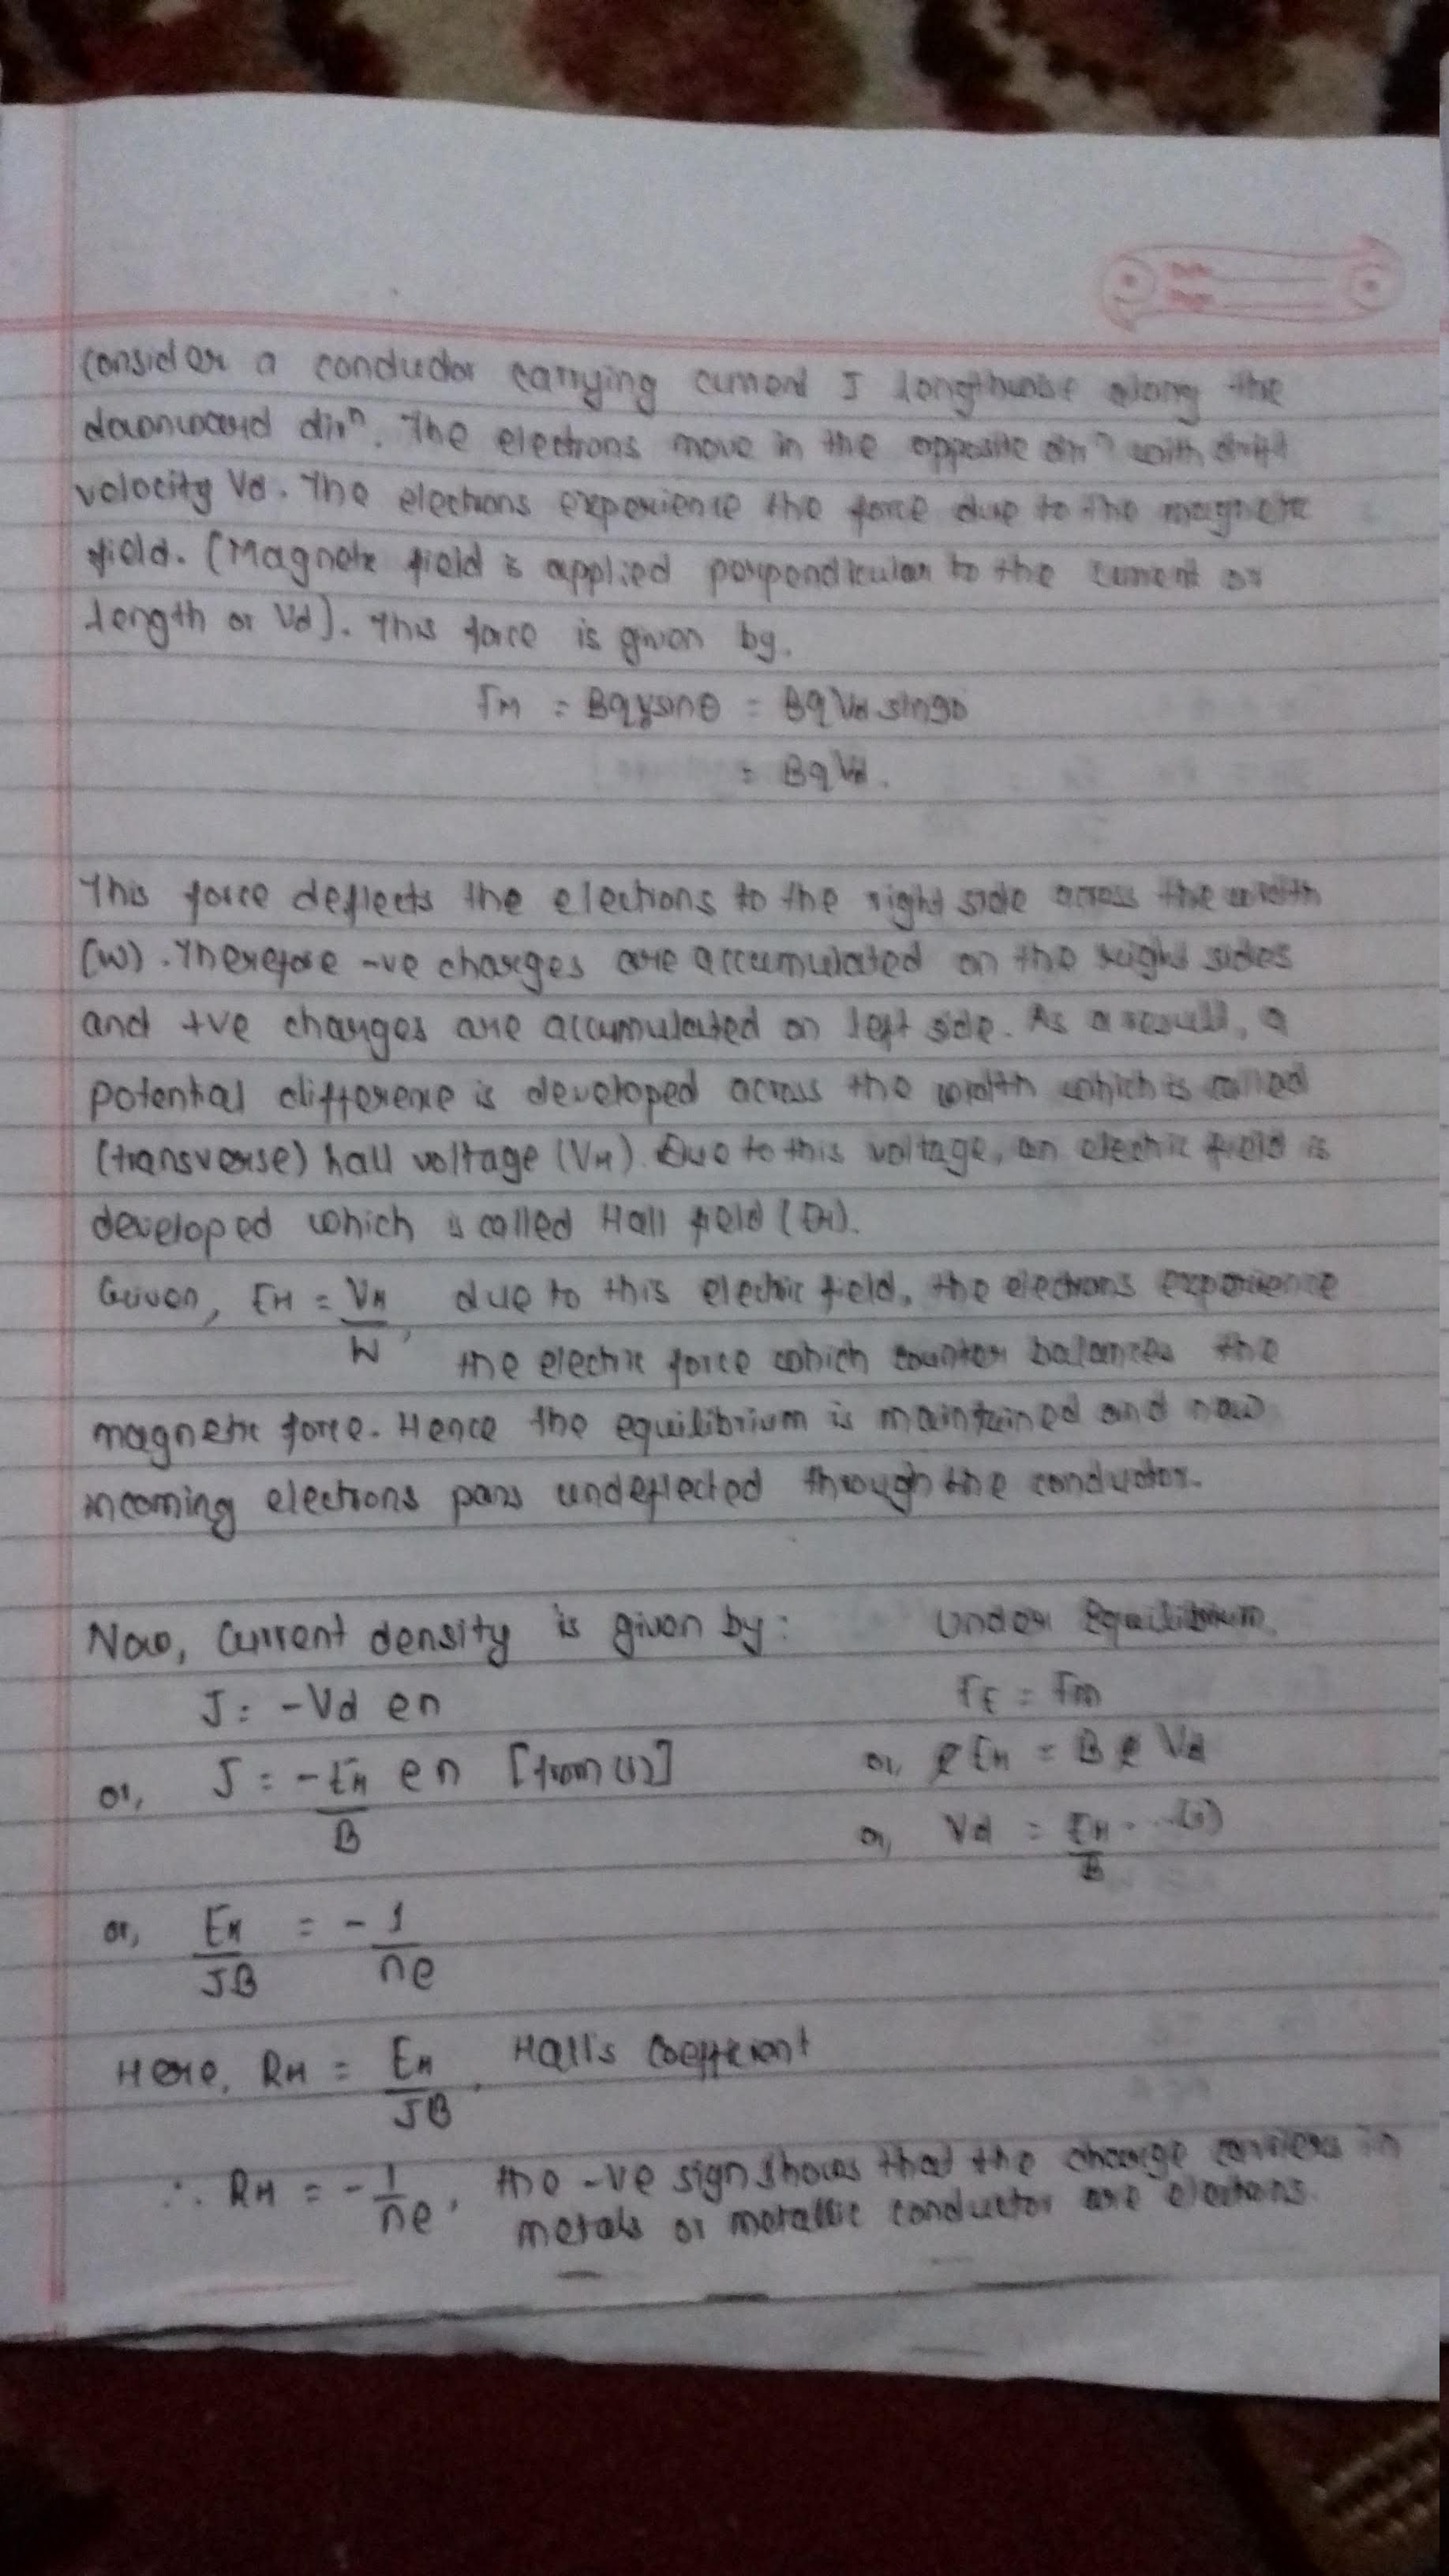 Consider a conductor carrying current I lengthwise along the
downward dirn. The electrons move in the opposite dirn with drift
velocity Vd. The electrons experience the force due to the magnetic
field. (Magnetic field is applied perpendicular to the current or
length or Vd). This force is given by.
FM = Bqvsinθ = BqVd sin90
= BqVd.
This force deflects the electrons to the right side across the width
(W). Therefore -ve charges are accumulated on the right sides
and +ve charges are accumulated on left side. As a result, a
potential difference is developed across the width which is called
(transverse) hall voltage (VH). Due to this voltage, an electric field is
developed which is called Hall field (EH).
Given, EH = VH/W, due to this electric field, the electrons experience
the electric force which counter balances the
magnetic force. Hence the equilibrium is maintained and new
incoming electrons pass undeflected through the conductor.
Now, Current density is given by: Under Equilibrium,
J = -Vd en FE = Fm
or, J = -EH/B en [from (1)] or, e EH = B e Vd
or, Vd = EH/B ... (1)
or, EH/JB = - 1/ne
Here, RH = EH/JB, Hall's Coefficient
∴ RH = - 1/ne, the -ve sign shows that the charge carriers in
metals or metallic conductor are electrons.